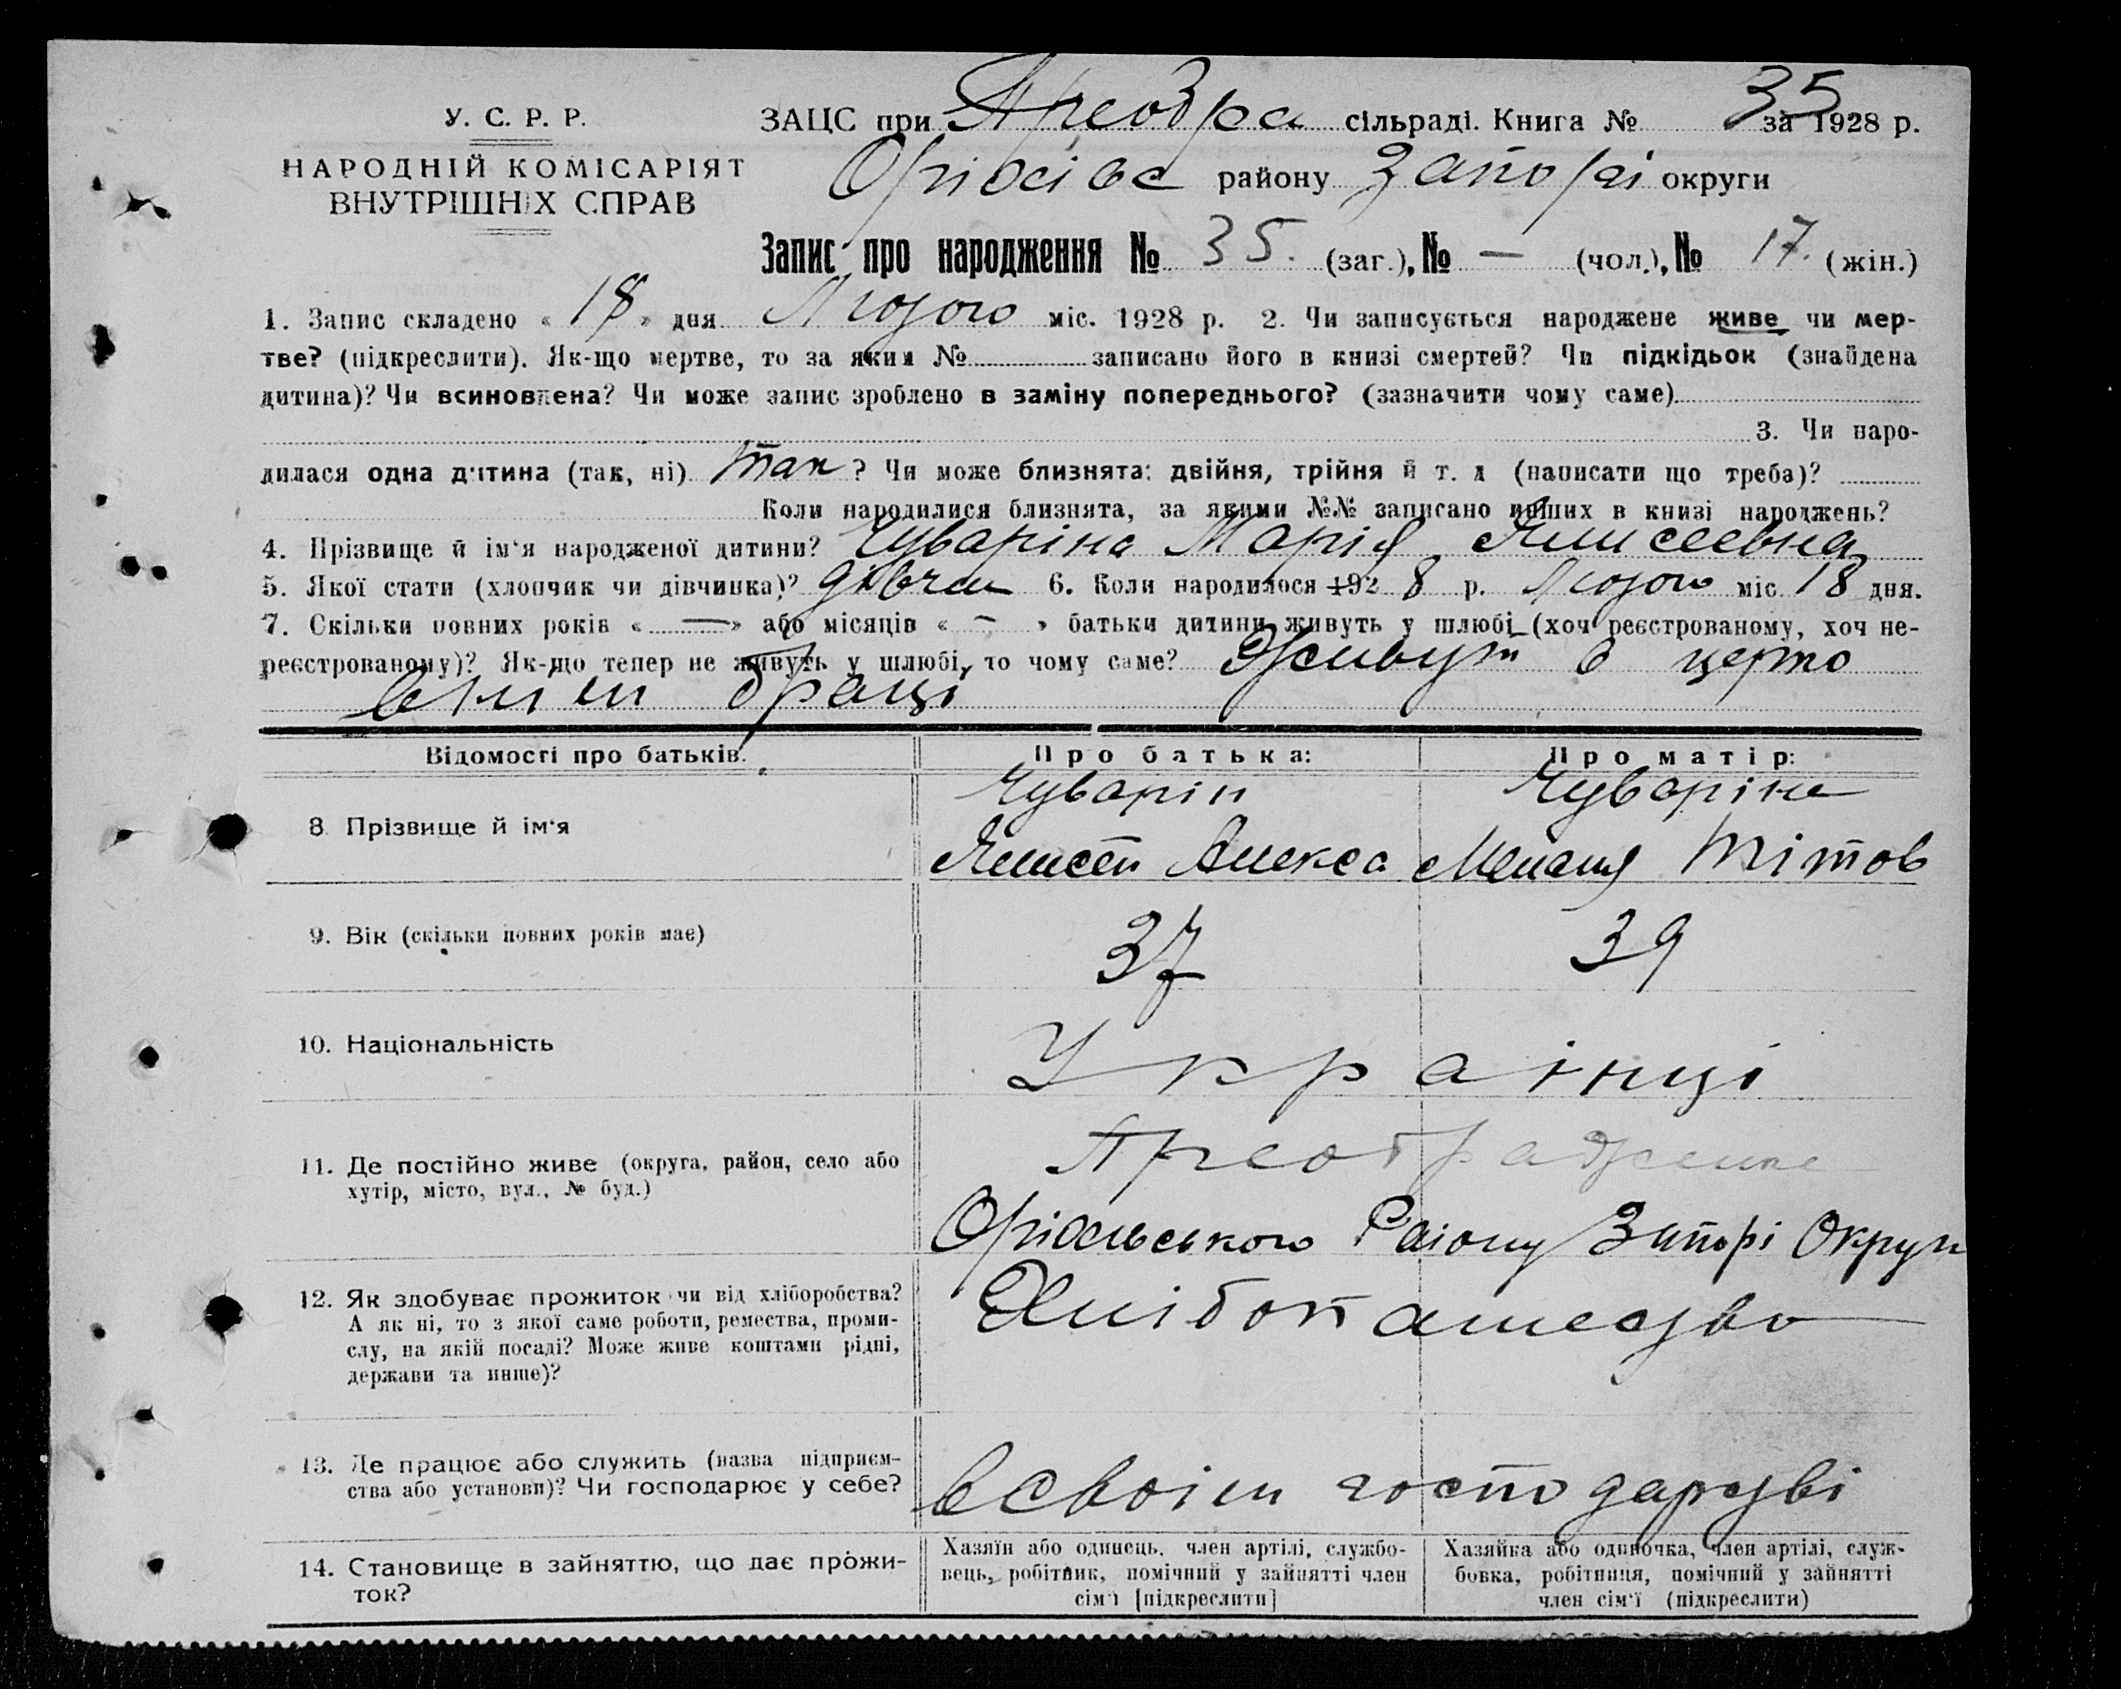 У. С. Р. Р.
НАРОДНІЙ КОМІСАРІЯТ
ВНУТРІШНІХ СПРАВ
ЗАЦС при Преобра сільраді. Книга № 35 за 1928 р.
Оріхівс району Запорі округи
Запис про народження № 35. (заг.), № — (чол.), № 17. (жін.)
1. Запис складено « 18 » дня Лютого міс. 1928 р. 2. Чи записується народжене живе чи мер-
тве? (підкреслити). Як-що мертве, то за яким № записано його в книзі смертей? Чи підкідьок (знайдена
дитина)? Чи всиновлена? Чи може запис зроблено в заміну попереднього? (зазначити чому саме)
3. Чи наро-
дилася одна дитина (так, ні) так ? Чи може близнята: двійня, трійня й т. д (написати що треба)?
Коли народилися близнята, за якими №№ записано инших в книзі народжень?
4. Прізвище й ім'я народженої дитини? Чуваріна Марія Елисеевна
5. Якої стати (хлопчик чи дівчинка)? дівчи 6. Коли народилося 192 8 р. Лютого міс. 18 дня.
7. Скільки повних років « — » або місяців « — » батьки дитини живуть у шлюбі (хоч реєстрованому, хоч не-
реєстрованому)? Як-що тепер не живуть у шлюбі, то чому саме? Живуть в церко
вním браці
Відомості про батьків.
Про батька:
Про матір:
8 Прізвище й ім'я
Чуварін
Елисей Алекса
Чуваріна
Меланя Тітов
9. Вік (скільки повних років має)
37
39
10. Національність
Українці
11. Де постійно живе (округа, район, село або
хутір, місто, вул., № буд.)
Преображенке
Оріхівського Раіону Запорі Округи
12. Як здобуває прожиток чи від хліборобства?
А як ні, то з якої саме роботи, ремества, проми-
слу, на якій посаді? Може живе коштами рідні,
держави та инше)?
Хлібопашество
13. Де працює або служить (назва підприєм-
ства або установи)? Чи господарює у себе?
в своїм господарстві
14. Становище в зайняттю, що дає прожи-
ток?
Хазяїн або одинець, член артілі, службо-
вець, робітник, помічний у зайнятті член
сім'ї [підкреслити]
Хазяйка або одиночка, член артілі, служ-
бовка, робітниця, помічний у зайнятті
член сім'ї (підкреслити)